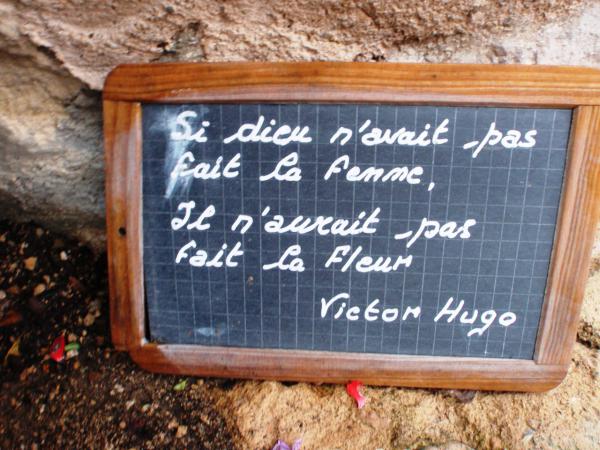 Si dieu n'avait pas
fait la femme,
Il n'aurait pas
fait la Fleur
Victor Hugo